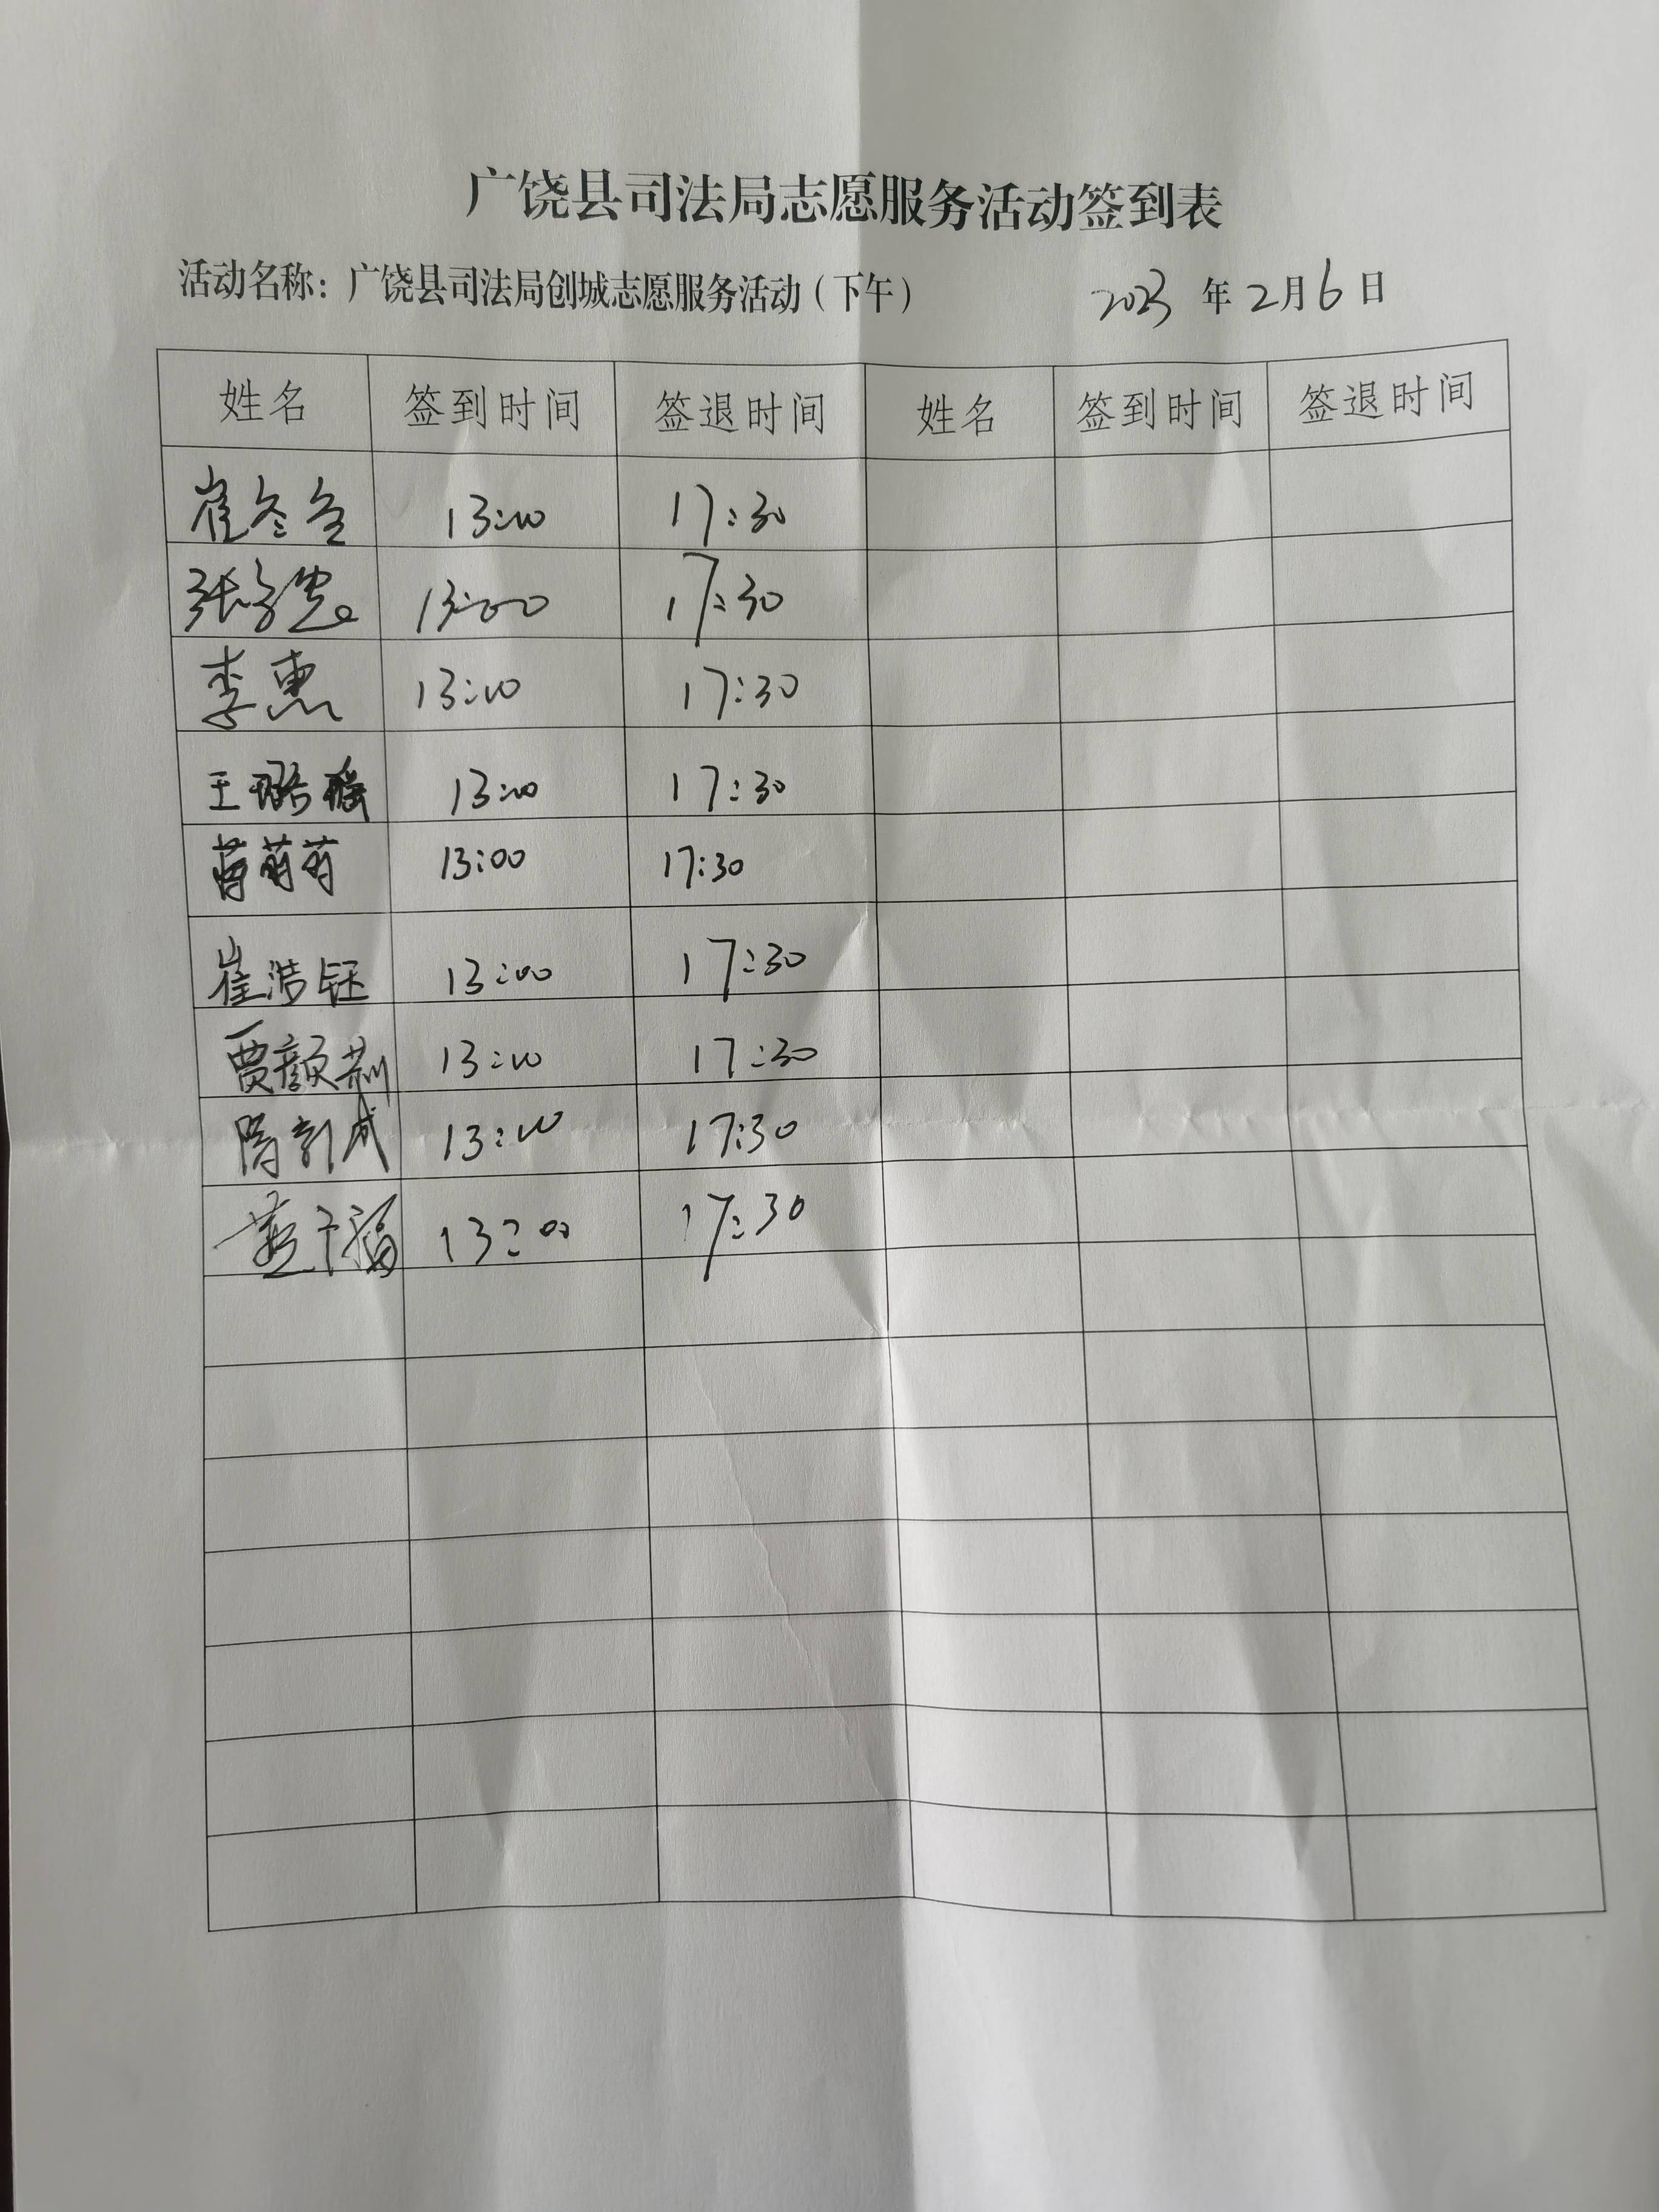 广饶县司法局志愿服务活动签到表
活动名称：广饶县司法局创城志愿服务活动（下午） 2023 年 2 月 6 日
姓名 签到时间 签退时间 姓名 签到时间 签退时间
崔冬冬 13:00 17:30
张 13:00 17:30
李惠 13:00 17:30
王璐瑶 13:00 17:30
苗萌萌 13:00 17:30
崔浩钰 13:00 17:30
贾颜 13:00 17:30
隋 成 13:00 17:30
燕 福 13:00 17:30